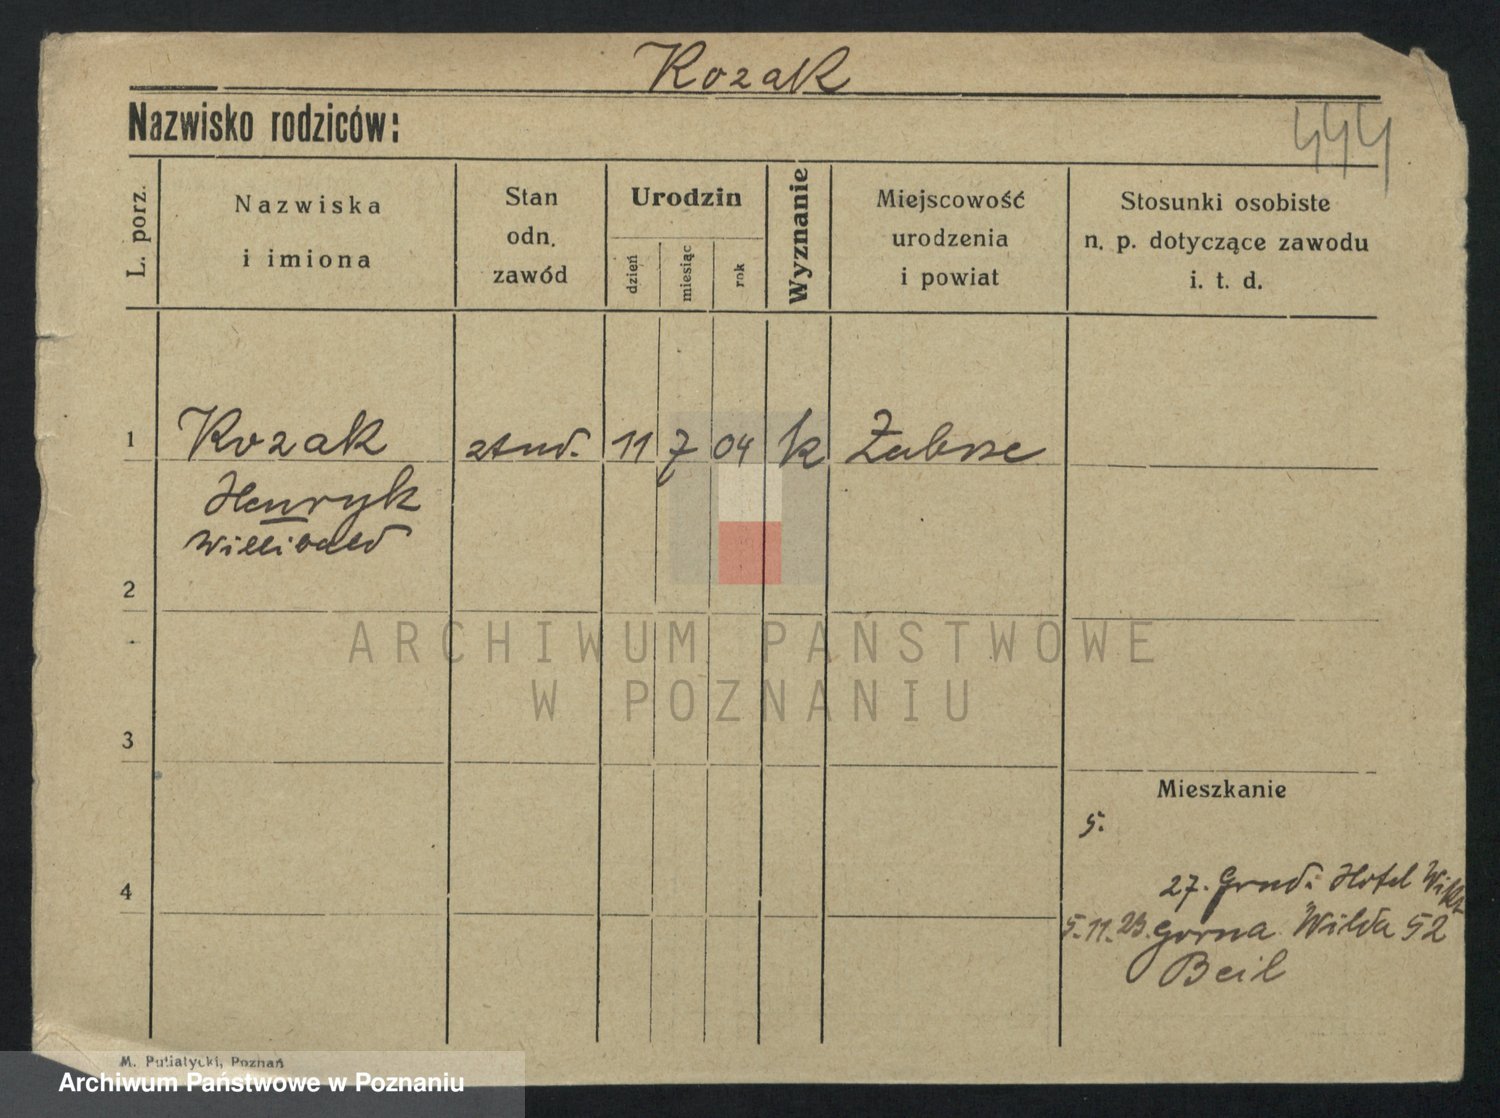 Kozak
Nazwisko rodziców:
444
L. porz.
Nazwiska
i imiona
Stan
odn.
zawód
Urodzin
dzień
miesiąc
rok
Wyznanie
Miejscowość
urodzenia
i powiat
Stosunki osobiste
n. p. dotyczące zawodu
i. t. d.
1
Kozak stud. 11 7 04 k Zabrze
Henryk
Willibald
2
ARCHIWUM PAŃSTWOWE
W POZNANIU
3
Mieszkanie
5.
4
27. Grud: Hotel Wikt
5.11.23. Gorna Wilda 52
Beil
M. Putiatycki, Poznań
Archiwum Państwowe w Poznaniu